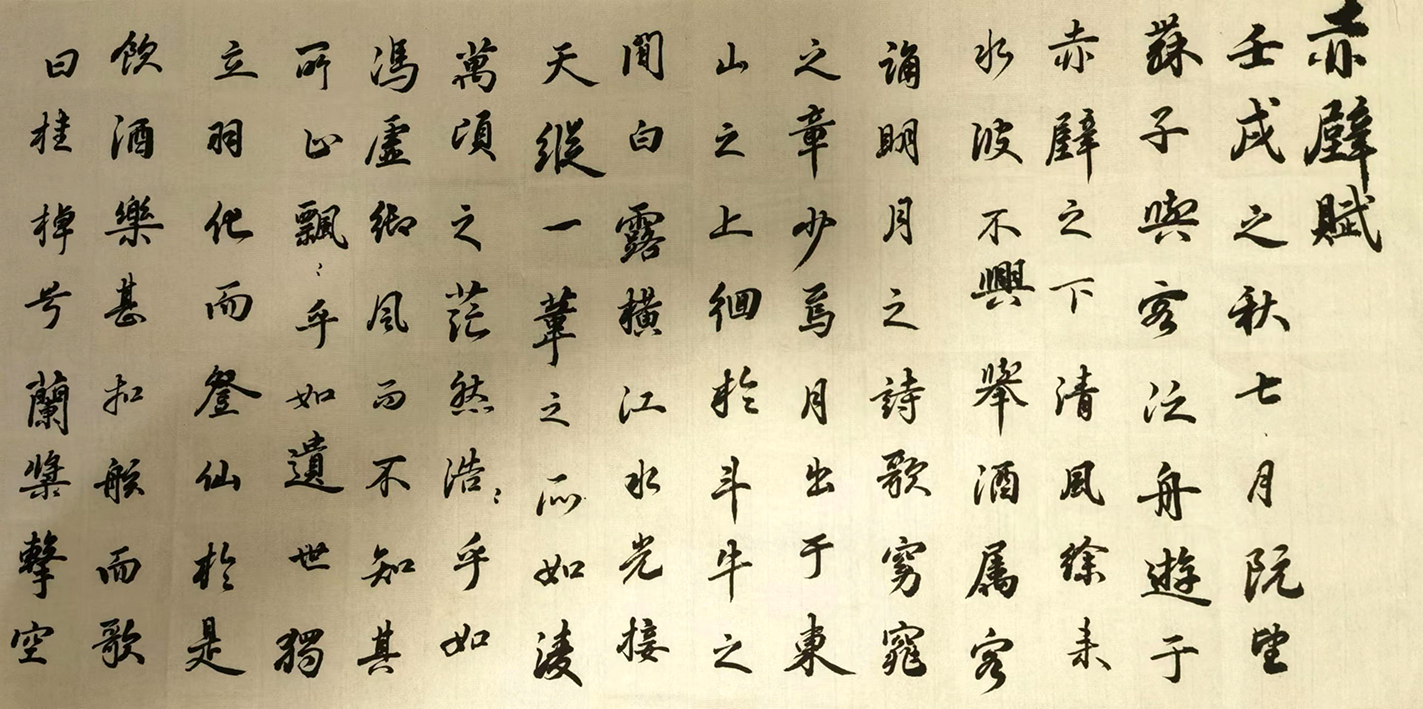 赤壁賦
壬戌之秋七月既望
蘇子與客泛舟遊于
赤壁之下清風徐来
水波不興舉酒属客
誦明月之詩歌窈窕
之章少焉月出于東
山之上徊於斗牛之
間白露橫江水光接
天縱一葦之所如凌
萬頃之茫然浩〻乎如
馮虛御風而不知其
所止飄〻乎如遺世獨
立羽化而登仙於是
飲酒樂甚扣舷而歌
曰桂棹兮蘭槳擊空